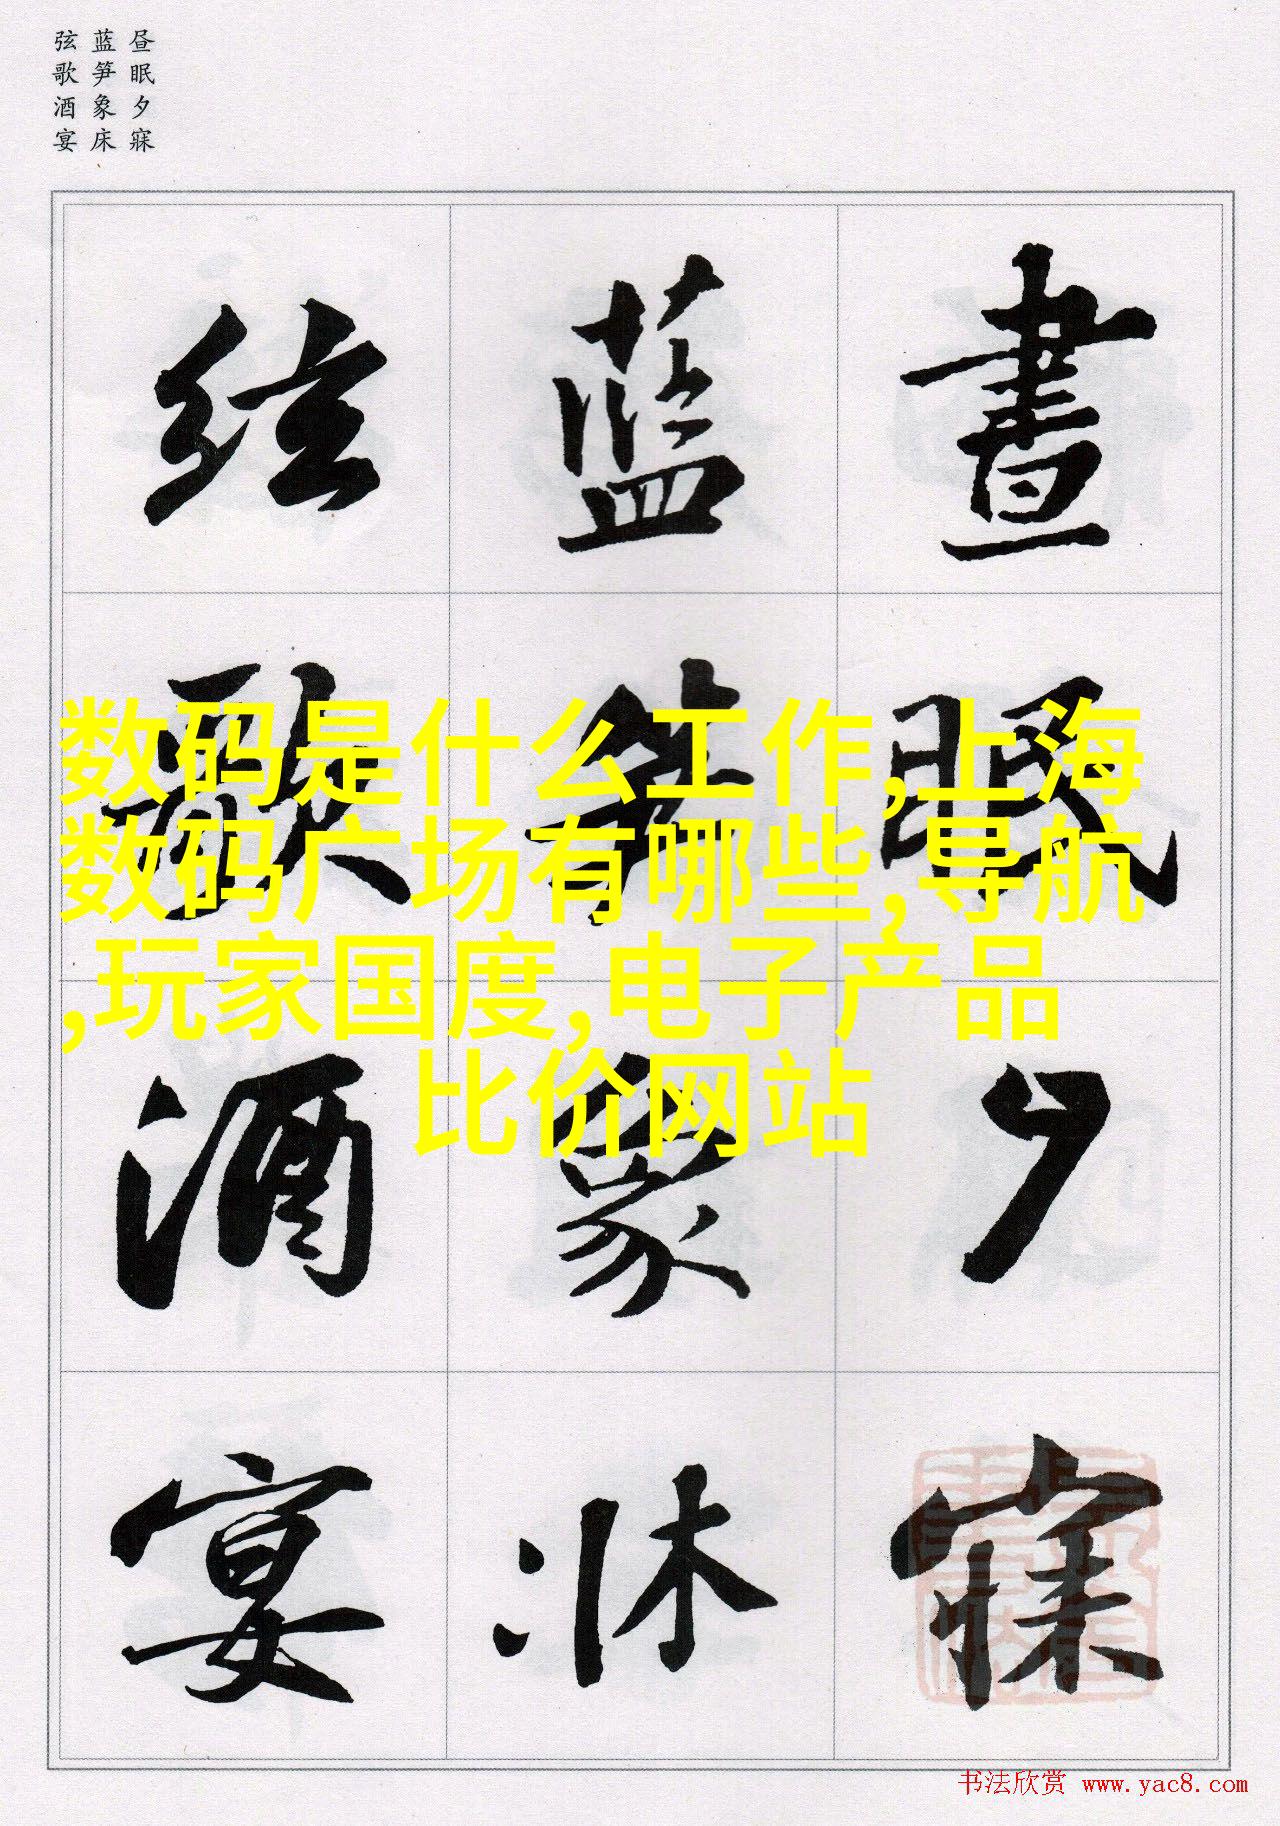 昼眠夕寐
蓝笋象床
弦歌酒宴
晝眠夕寐
藍笋象牀
弦歌酒宴
数码是什么工作,上海
数码广场有哪些,导航
,玩家国度,电子产品
比价网站
书法欣赏 www.yac8.com